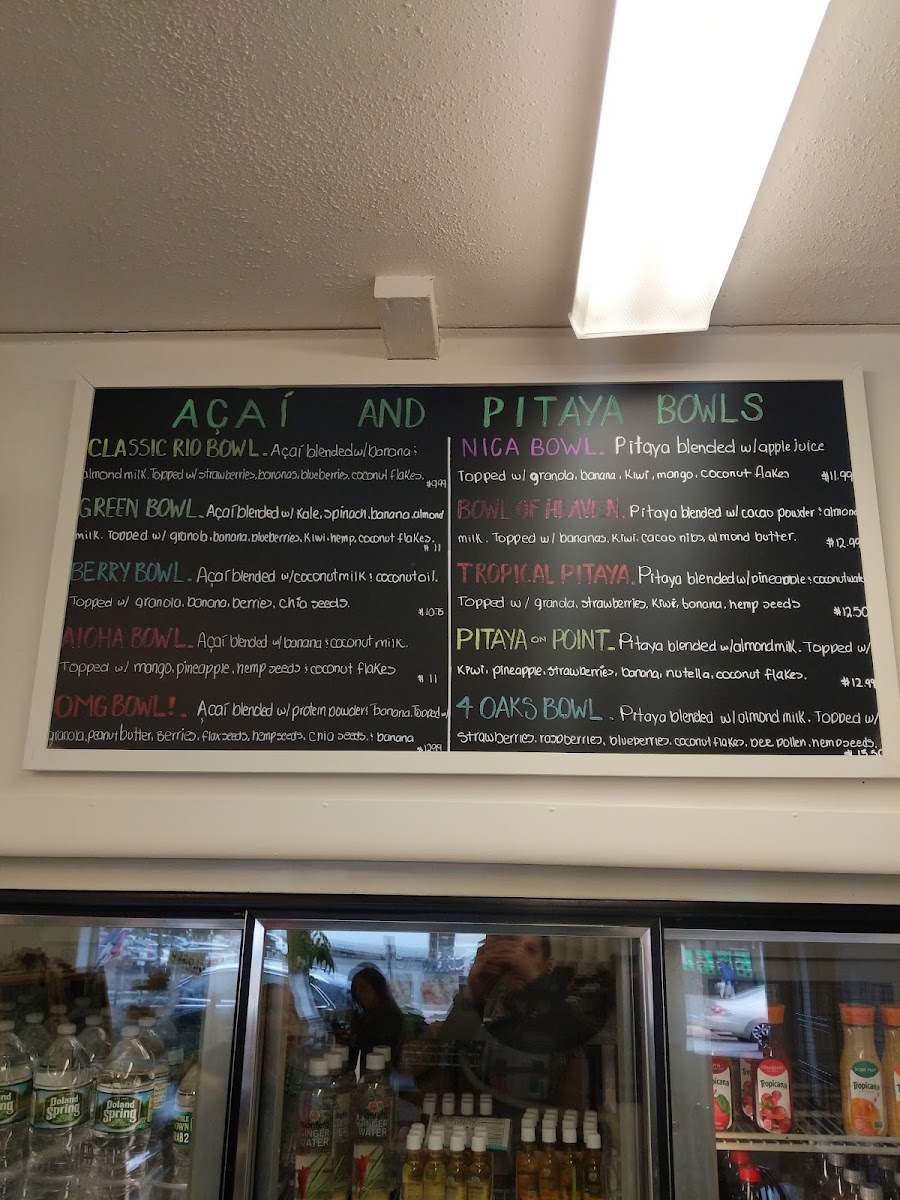 AÇAÍ AND PITAYA BOWLS
CLASSIC RIO BOWL - Açaí blended w/ banana &
almond milk. Topped w/ strawberries, bananas, blueberries, coconut flakes. $9.99
GREEN BOWL - Açaí blended w/ Kale, spinach, banana, almond
milk. Topped w/ granola, banana, blueberries, Kiwi, hemp, coconut flakes. $11
BERRY BOWL - Açaí blended w/ coconut milk & coconut oil.
Topped w/ granola, banana, berries, chia seeds. $10.75
AlOHA BOWL - Açaí blended w/ banana & coconut milk.
Topped w/ mango, pineapple, hemp seeds & coconut flakes $11
OMG BOWL! - Açaí blended w/ protein powder & banana. Topped w/
granola, peanut butter, berries, flaxseeds, hemp seeds, chia seeds, & banana $12.99
NICA BOWL - Pitaya blended w/ apple juice
Topped w/ granola, banana, Kiwi, mango, coconut flakes $11.99
BOWL OF HEAVEN - Pitaya blended w/ cacao powder & almond
milk. Topped w/ bananas, Kiwi, cacao nibs, almond butter. $12.99
TROPICAL PITAYA - Pitaya blended w/ pineapple & coconut water
Topped w/ granola, strawberries, Kiwi, banana, hemp seeds $12.50
PITAYA ON POINT - Pitaya blended w/ almond milk. Topped w/
Kiwi, pineapple, strawberries, banana, nutella, coconut flakes. $12.99
4 OAKS BOWL - Pitaya blended w/ almond milk. Topped w/
strawberries, raspberries, blueberries, coconut flakes, bee pollen, hemp seeds.
Poland
Spring
Poland
Spring
GINGER
WATER
GINGER
WATER
Tropicana
Tropicana